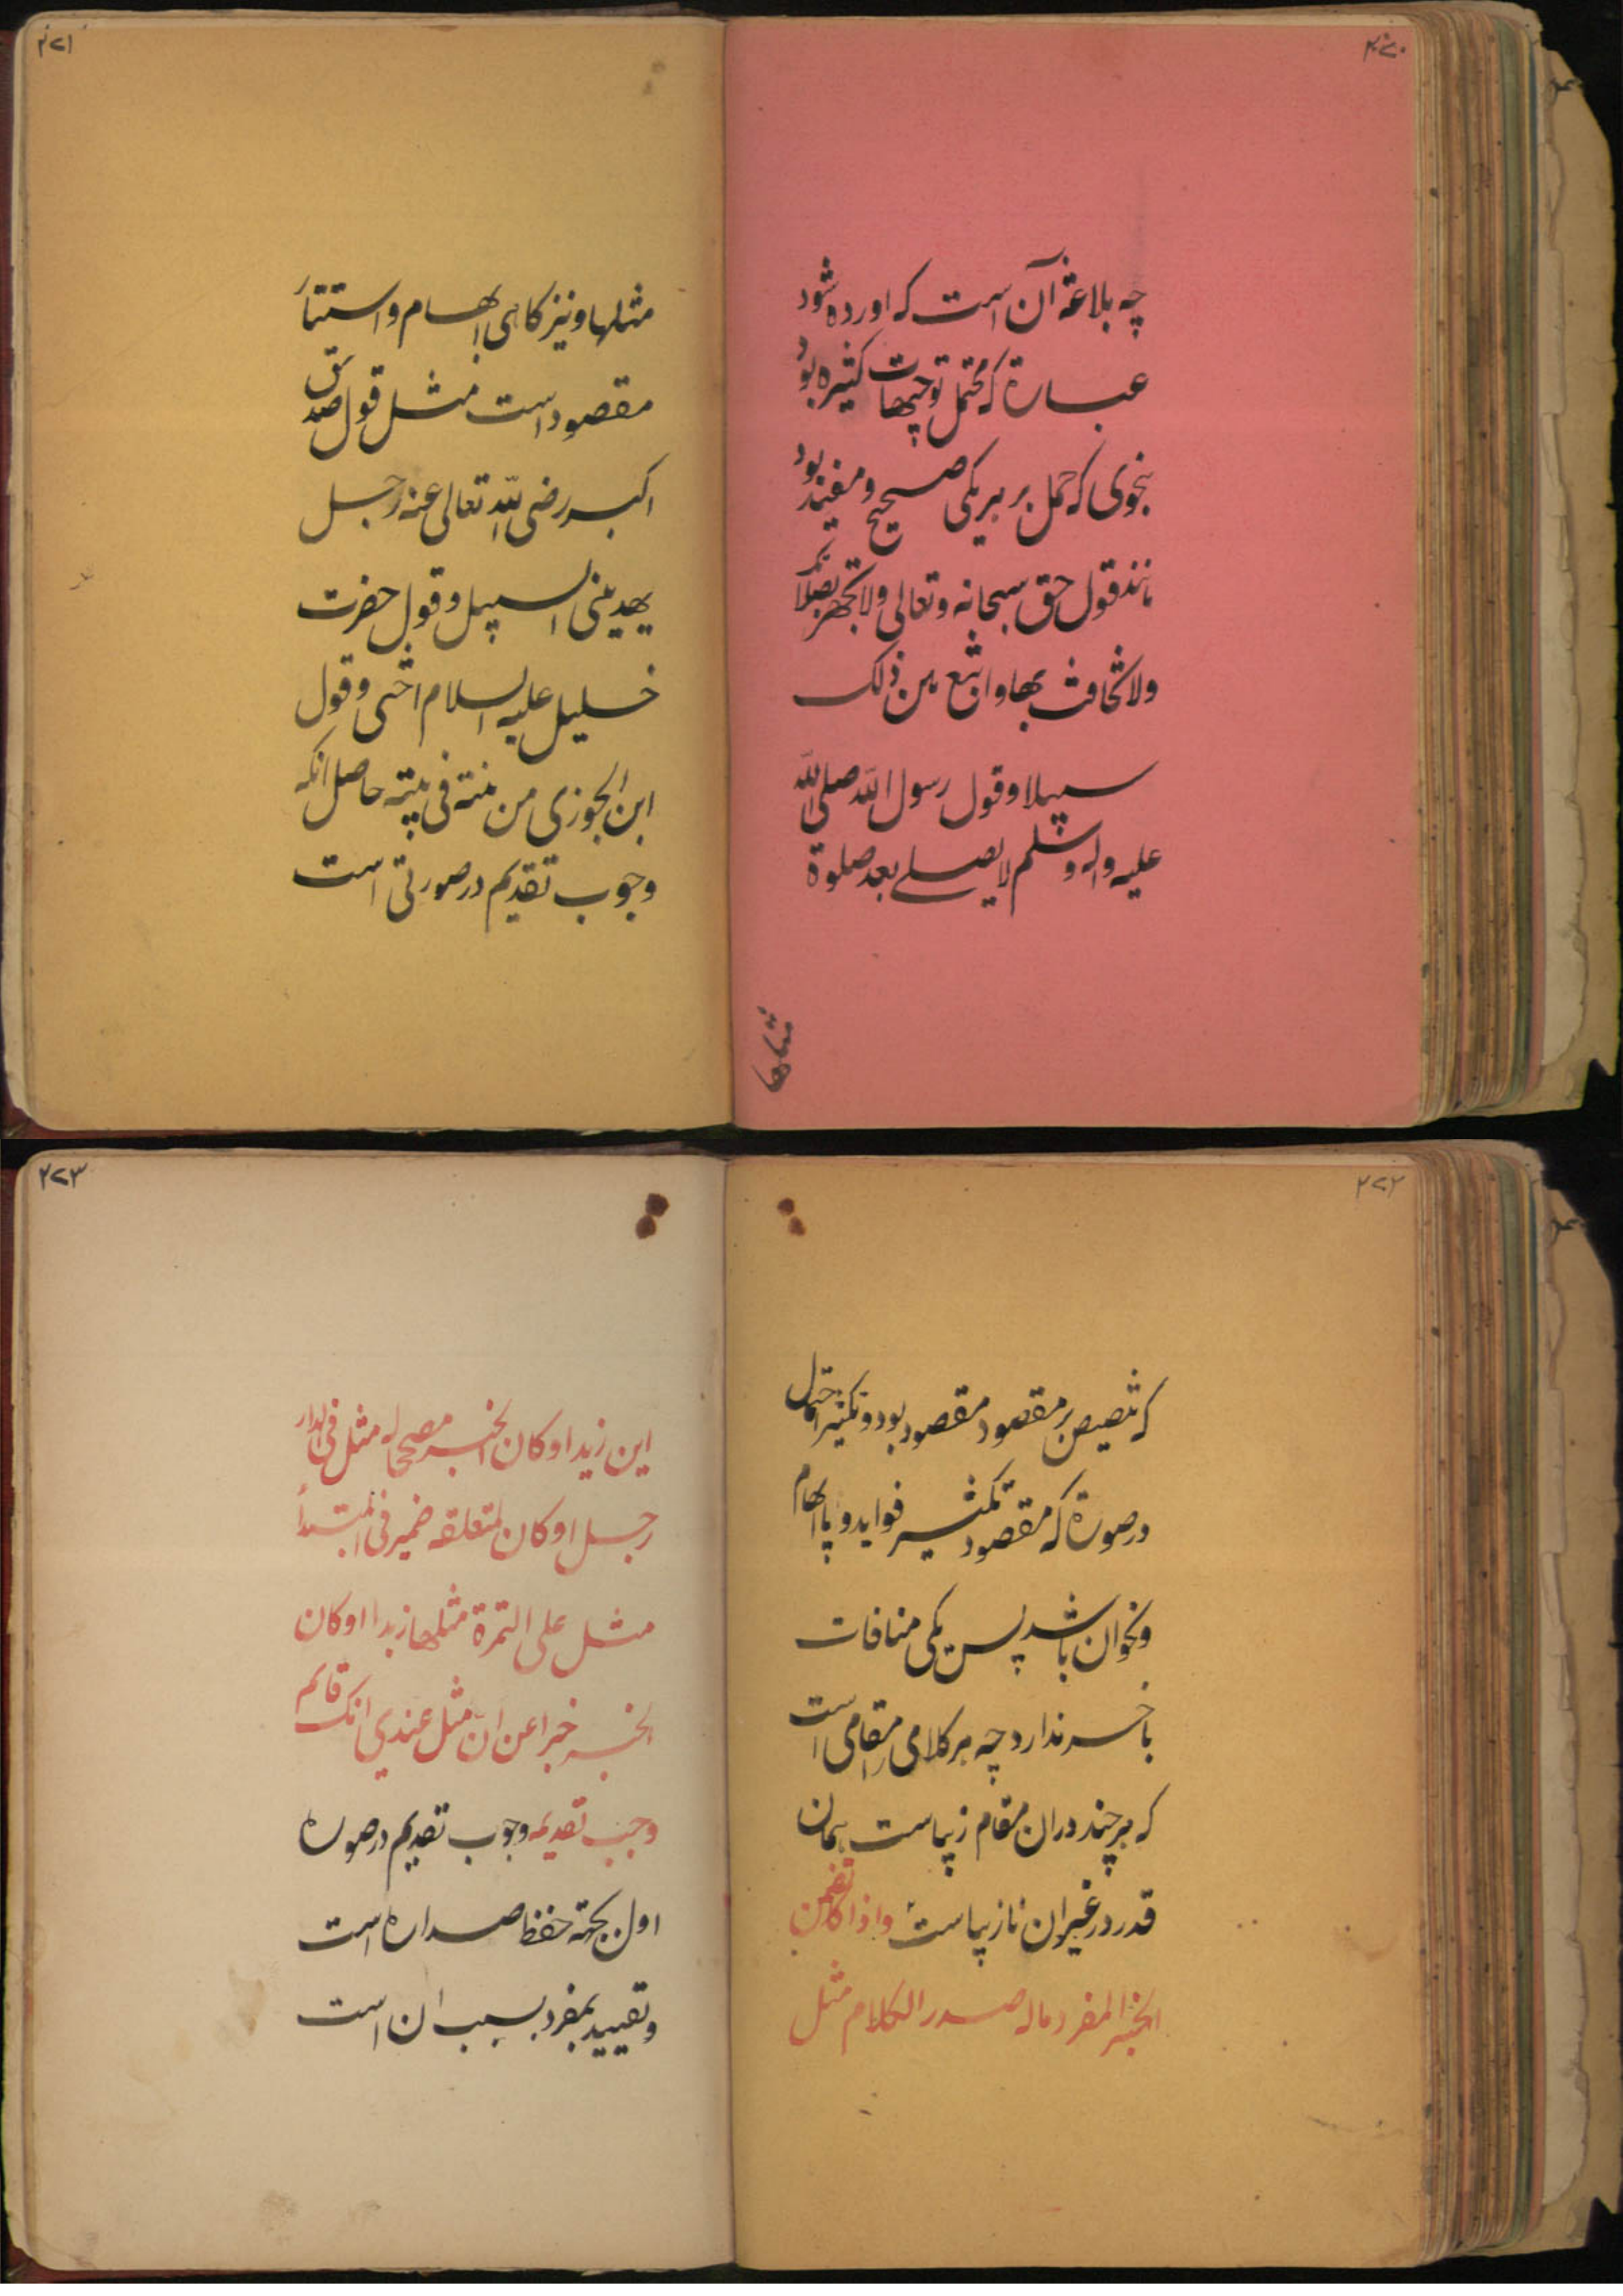 ۲۷۰
چه بلاغة آن است که اورده شود
عبارة که محتمل توجیهات کثیره بود
بنحوی که حمل بر هریکی صحیح و مفید بود
مانند قول حق سبحانه و تعالی ولا تجهر بصلاتک
ولا تخافت بها وابتغ بین ذلک
سبیلا و قول رسول الله صلی الله
علیه واله وسلم لا یصلے بعد صلوة
مثلها
۲۷۱
مثلها و نیز کاهی ابهام و استتار
مقصود است مثل قول صدیق
اکبر رضی الله تعالی عنه رجل
یهدینی السبیل و قول حضرت
خلیل علیه السلام اختی و قول
ابن الجوزی من بنته فی بیته حاصل انکه
وجوب تقدیم در صورتی است
۲۷۲
که تنصیص بر مقصود مقصود بود و تکثیر احتمال
در صورة که مقصود تکثیر فواید و یا ابهام
و نحو ان باشد پس یکی منافات
با خر ندارد چه هر کلامی را مقامی است
که هر چند دران مقام زیباست همان
قدر در غیر ان نازیباست واذا تضمن
الخبر المفرد ماله صدر الکلام مثل
۲۷۳
این زید اوکان الخبر مصححا له مثل فی الدار
رجل اوکان لمتعلقه ضمیر فی المبتدأ
مثل علی التمرة مثلها زبدا اوکان
الخبر خبرا عن ان مثل عندي انک قائم
وجب تقدیمه وجوب تقدیم در صورة
اول بجهة حفظ صدارة است
و تقیید بمفرد بسبب ان است